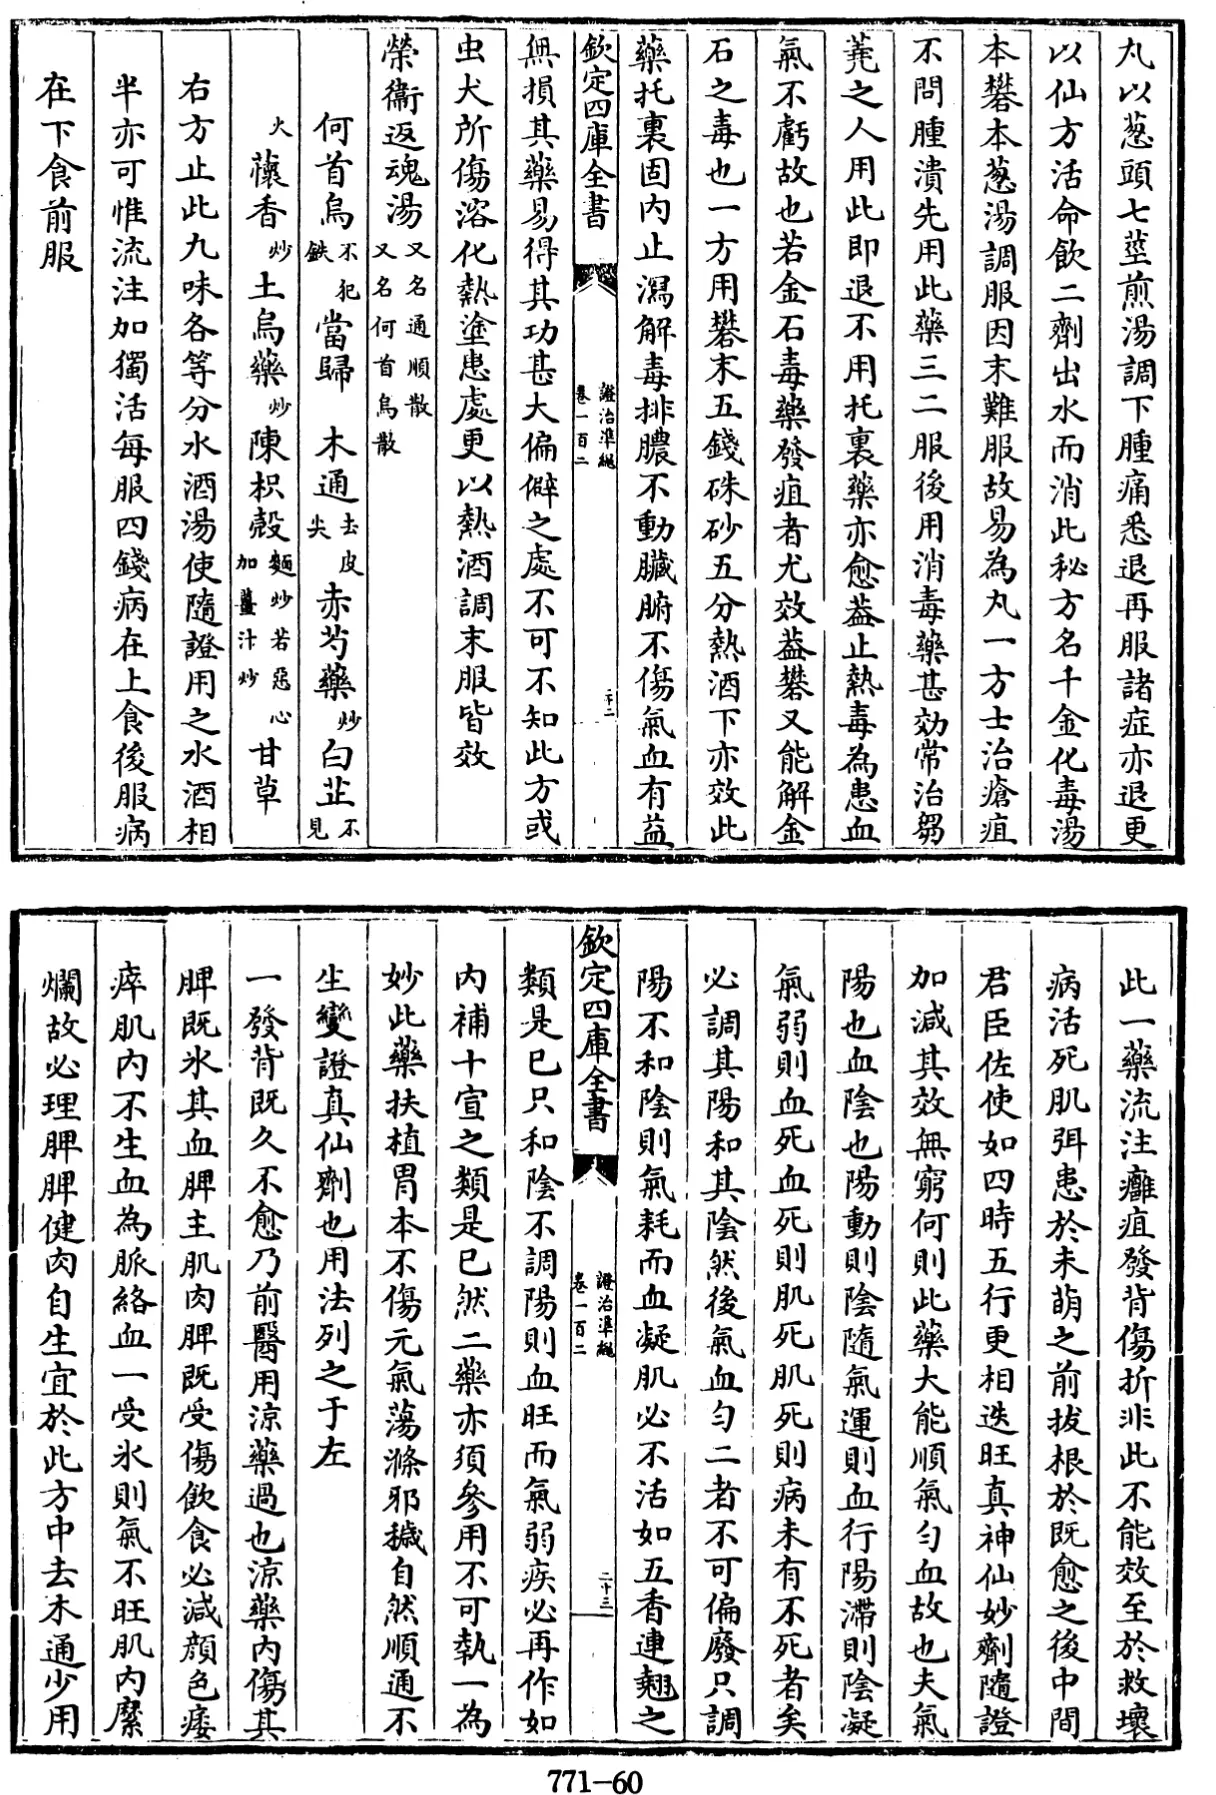 丸以葱頭七莖煎湯調下腫痛悉退再服諸症亦退更
以仙方活命飲二劑出水而消此秘方名千金化毒湯
本礬本葱湯調服因末難服故易為丸一方士治瘡疽
不問腫潰先用此藥三二服後用消毒藥甚効常治芻
蕘之人用此即退不用托裏藥亦愈葢止熱毒為患血
氣不虧故也若金石毒藥發疽者尤效葢礬又能解金
石之毒也一方用礬末五錢硃砂五分熱酒下亦效此
藥托裏固内止瀉解毒排膿不動臟腑不傷氣血有益
欽定四庫全書
證治準繩
卷一百二
二十二
無損其藥易得其功甚大偏僻之處不可不知此方或
虫犬所傷溶化熱塗患處更以熱酒調末服皆效
榮衞返魂湯又名通順散又名何首烏散
何首烏不犯鉄當歸 木通去皮尖赤芍藥炒白芷不見
火 蘹香炒土烏藥炒陳枳殼麵炒若惡心加薑汁炒甘草
右方止此九味各等分水酒湯使隨證用之水酒相
半亦可惟流注加獨活每服四錢病在上食後服病
在下食前服
此一藥流注癰疽發背傷折非此不能效至於救壞
病活死肌弭患於未萌之前拔根於既愈之後中間
君臣佐使如四時五行更相迭旺真神仙妙劑隨證
加減其效無窮何則此藥大能順氣匀血故也夫氣
陽也血陰也陽動則陰隨氣運則血行陽滯則陰凝
氣弱則血死血死則肌死肌死則病未有不死者矣
必調其陽和其陰然後氣血匀二者不可偏廢只調
陽不和陰則氣耗而血凝肌必不活如五香連翹之
欽定四庫全書
證治準繩
卷一百二
二十三
類是已只和陰不調陽則血旺而氣弱疾必再作如
内補十宣之類是已然二藥亦須參用不可執一為
妙此藥扶植胃本不傷元氣蕩滌邪穢自然順通不
生變證真仙劑也用法列之于左
一發背既久不愈乃前醫用涼藥過也涼藥内傷其
脾既氷其血脾主肌肉脾既受傷飲食必減顏色痿
瘁肌内不生血為脈絡血一受氷則氣不旺肌内縻
爛故必理脾脾健肉自生宜於此方中去木通少用
771-60